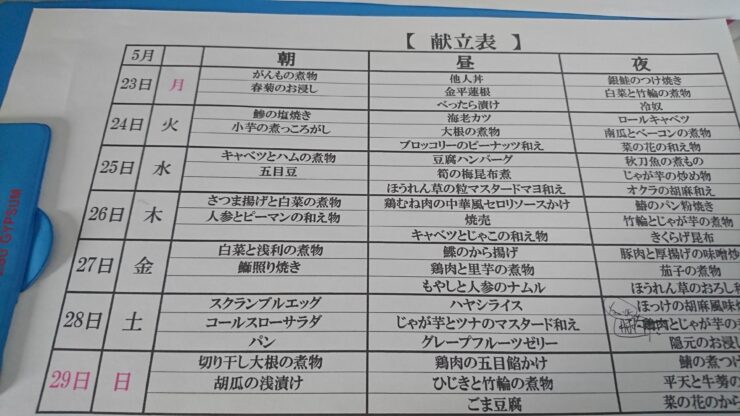 【 献立表 】
5月 朝 昼 夜
23日 月 がんもの煮物 他人丼 銀鮭のつけ焼き
春菊のお浸し 金平蓮根 白菜と竹輪の煮物
べったら漬け 冷奴
24日 火 鯵の塩焼き 海老カツ ロールキャベツ
小芋の煮っころがし 大根の煮物 南瓜とベーコンの煮物
ブロッコリーのピーナッツ和え 菜の花の和え物
25日 水 キャベツとハムの煮物 豆腐ハンバーグ 秋刀魚の煮もの
五目豆 筍の梅昆布煮 じゃが芋の炒め物
ほうれん草の粒マスタードマヨ和え オクラの胡麻和え
26日 木 さつま揚げと白菜の煮物 鶏むね肉の中華風セロリソースかけ 鱈のパン粉焼き
人参とピーマンの和え物 焼売 竹輪とじゃが芋の煮物
キャベツとじゃこの和え物 きくらげ昆布
27日 金 白菜と浅利の煮物 鰈のから揚げ 豚肉と厚揚げの味噌炒
鰤照り焼き 鶏肉と里芋の煮物 茄子の煮物
もやしと人参のナムル ほうれん草のおろし
28日 土 スクランブルエッグ ハヤシライス ほっけの胡麻風味焼
コールスローサラダ じゃが芋とツナのマスタード和え 鶏肉とじゃが芋の
パン グレープフルーツゼリー 隠元のお浸し
29日 日 切り干し大根の煮物 鶏肉の五目餡かけ 鯖の煮つけ
胡瓜の浅漬け ひじきと竹輪の煮物 平天と牛蒡の
ごま豆腐 菜の花のから
GYPSUM